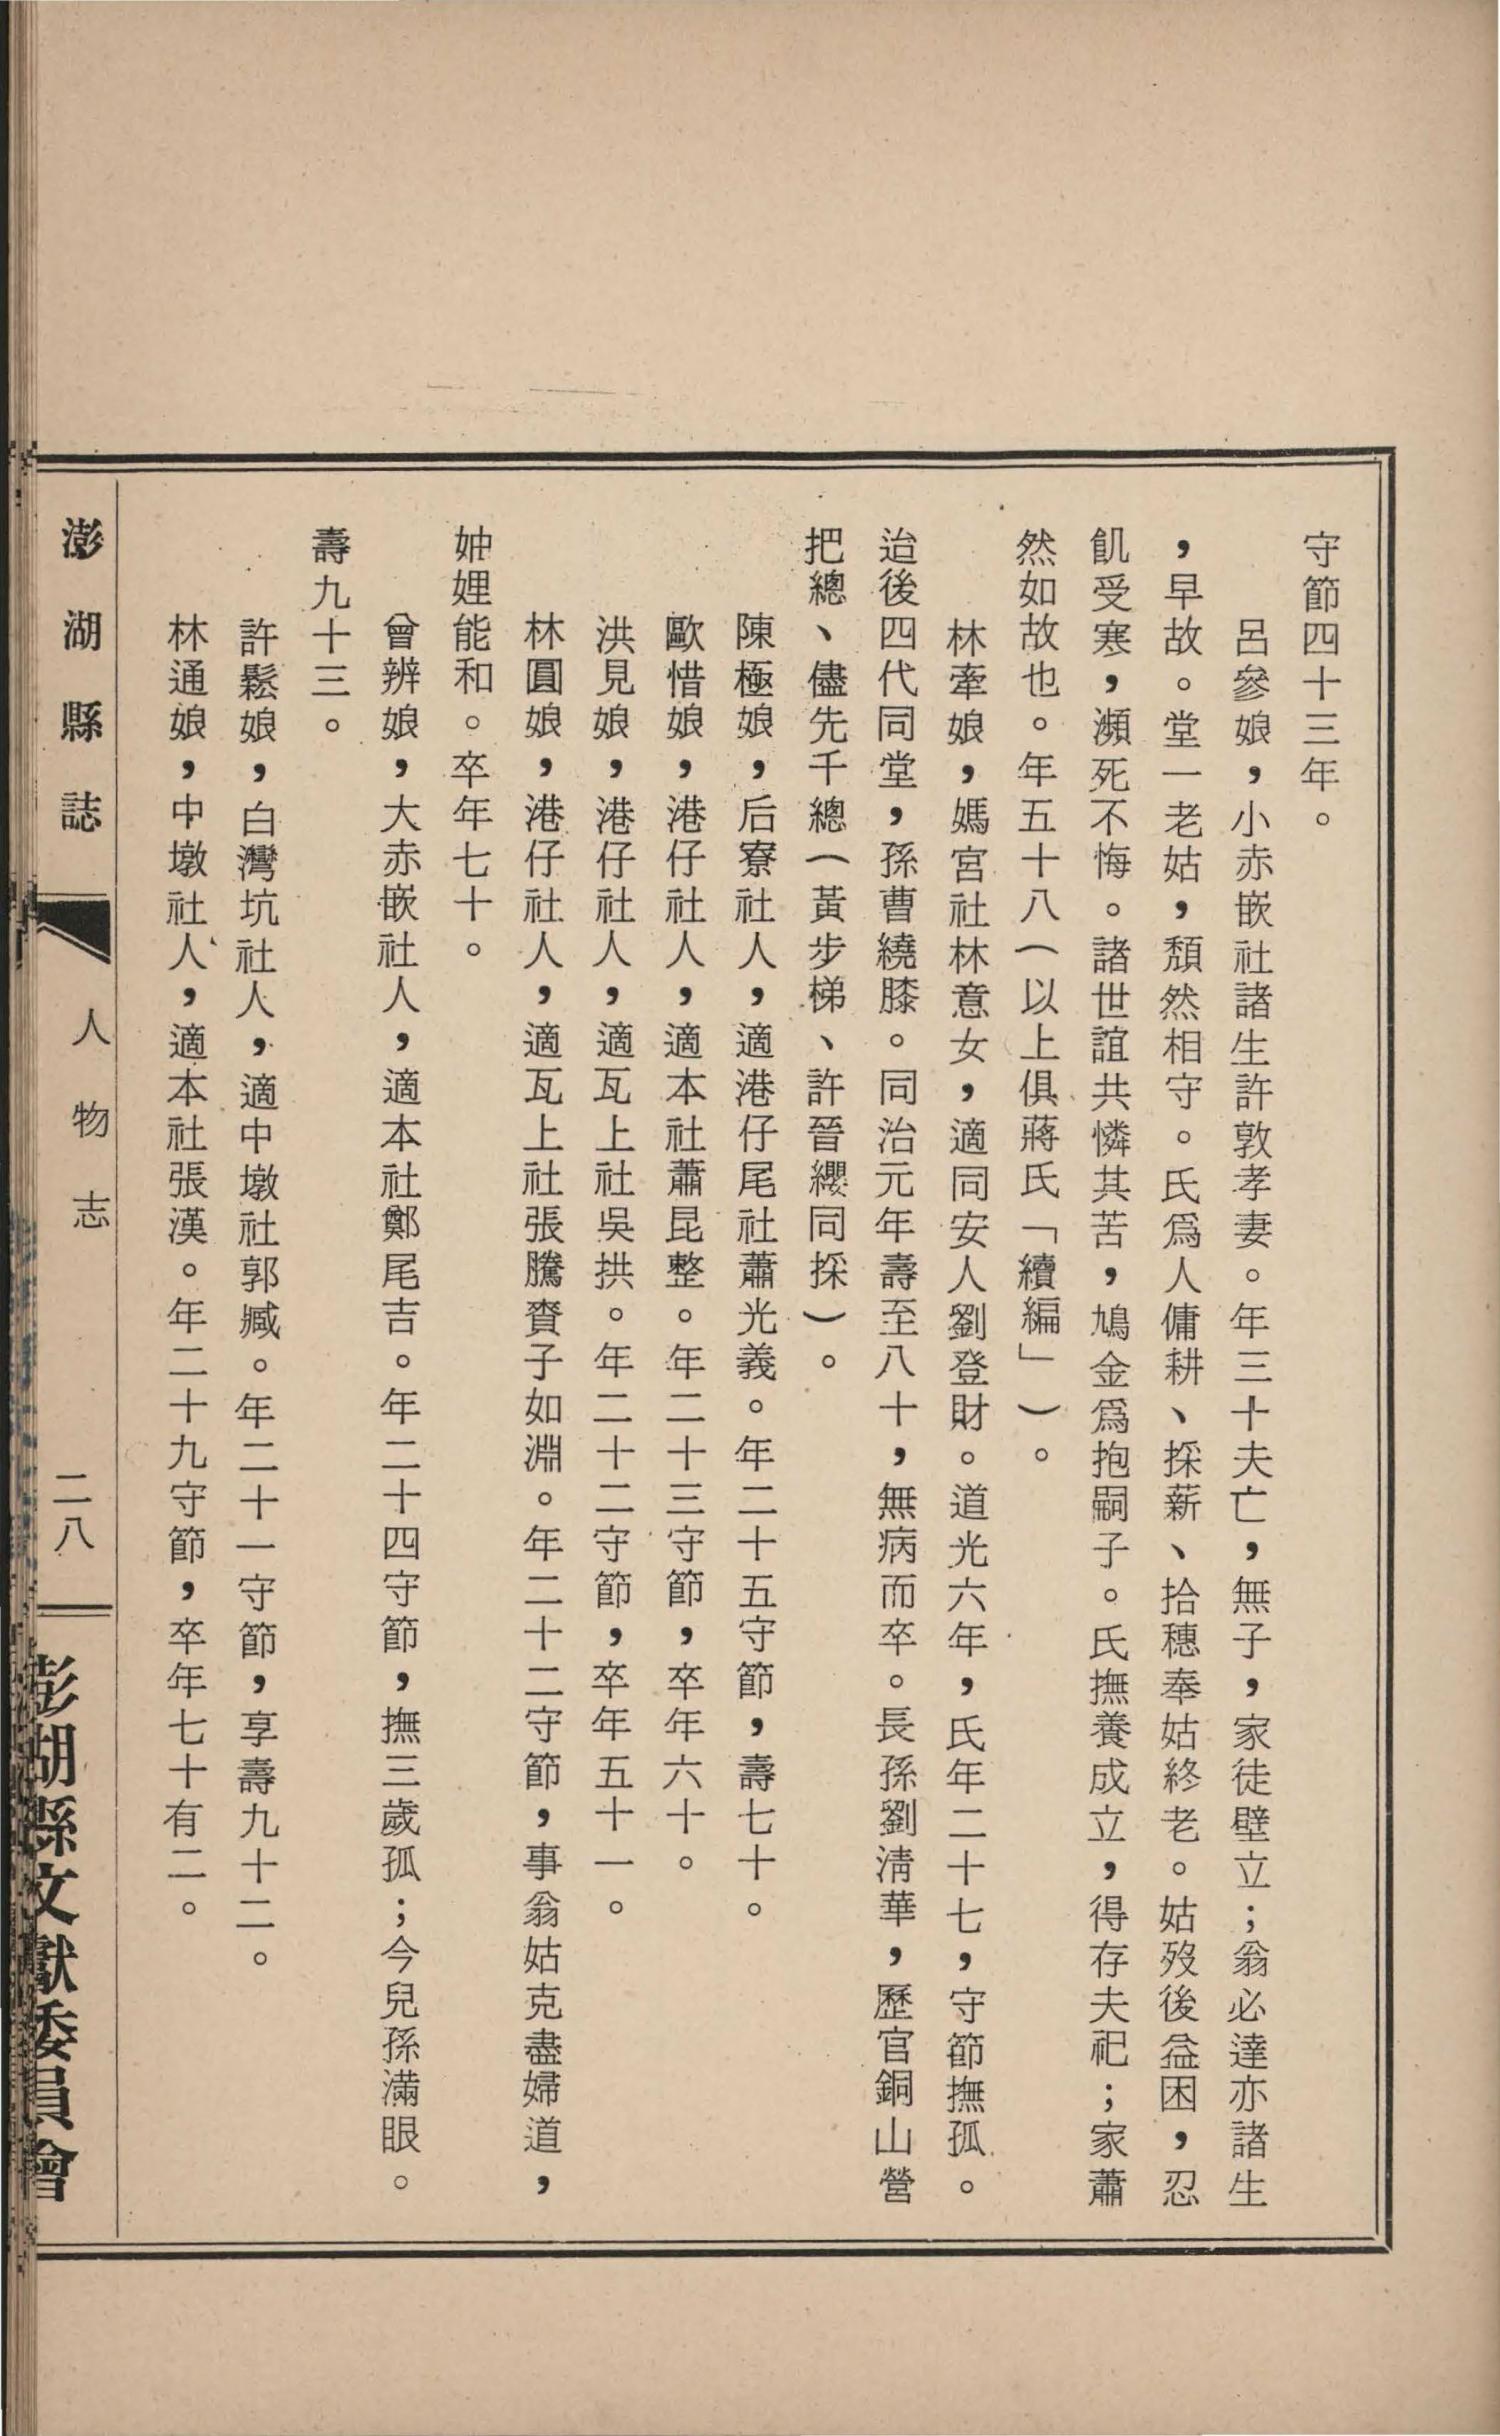 守節四十三年。
呂參娘，小赤嵌社諸生許敦孝妻。年三十夫亡，無子，家徒壁立；翁必達亦諸生
，早故。堂一老姑，頹然相守。氏爲人傭耕、採薪、拾穗奉姑終老。姑歿後益困，忍
飢受寒，瀕死不悔。諸世誼共憐其苦，鳩金爲抱嗣子。氏撫養成立，得存夫祀；家蕭
然如故也。年五十八（以上俱蔣氏「續編」）。
林牽娘，媽宮社林意女，適同安人劉登財。道光六年，氏年二十七，守節撫孤。
迨後四代同堂，孫曹繞膝。同治元年壽至八十，無病而卒。長孫劉淸華，歷官銅山營
把總、儘先千總（黃步梯、許晉纓同採）。
陳極娘，后寮社人，適港仔尾社蕭光義。年二十五守節，壽七十。
歐惜娘，港仔社人，適本社蕭昆整。年二十三守節，卒年六十。
洪見娘，港仔社人，適瓦上社吳拱。年二十二守節，卒年五十一。
林圓娘，港仔社人，適瓦上社張騰賚子如淵。年二十二守節，事翁姑克盡婦道，
妯娌能和。卒年七十。
曾辨娘，大赤嵌社人，適本社鄭尾吉。年二十四守節，撫三歲孤；今兒孫滿眼。
壽九十三。
許鬆娘，白灣坑社人，適中墩社郭臧。年二十一守節，享壽九十二。
林通娘，中墩社人，適本社張漢。年二十九守節，卒年七十有二。
澎湖縣誌 人物志 二八 澎湖縣文獻委員會